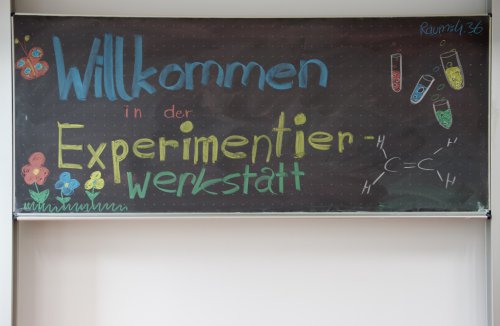 Raum 4.36
Willkommen
in der
Experimentier-
werkstatt
H H
C=C
H H